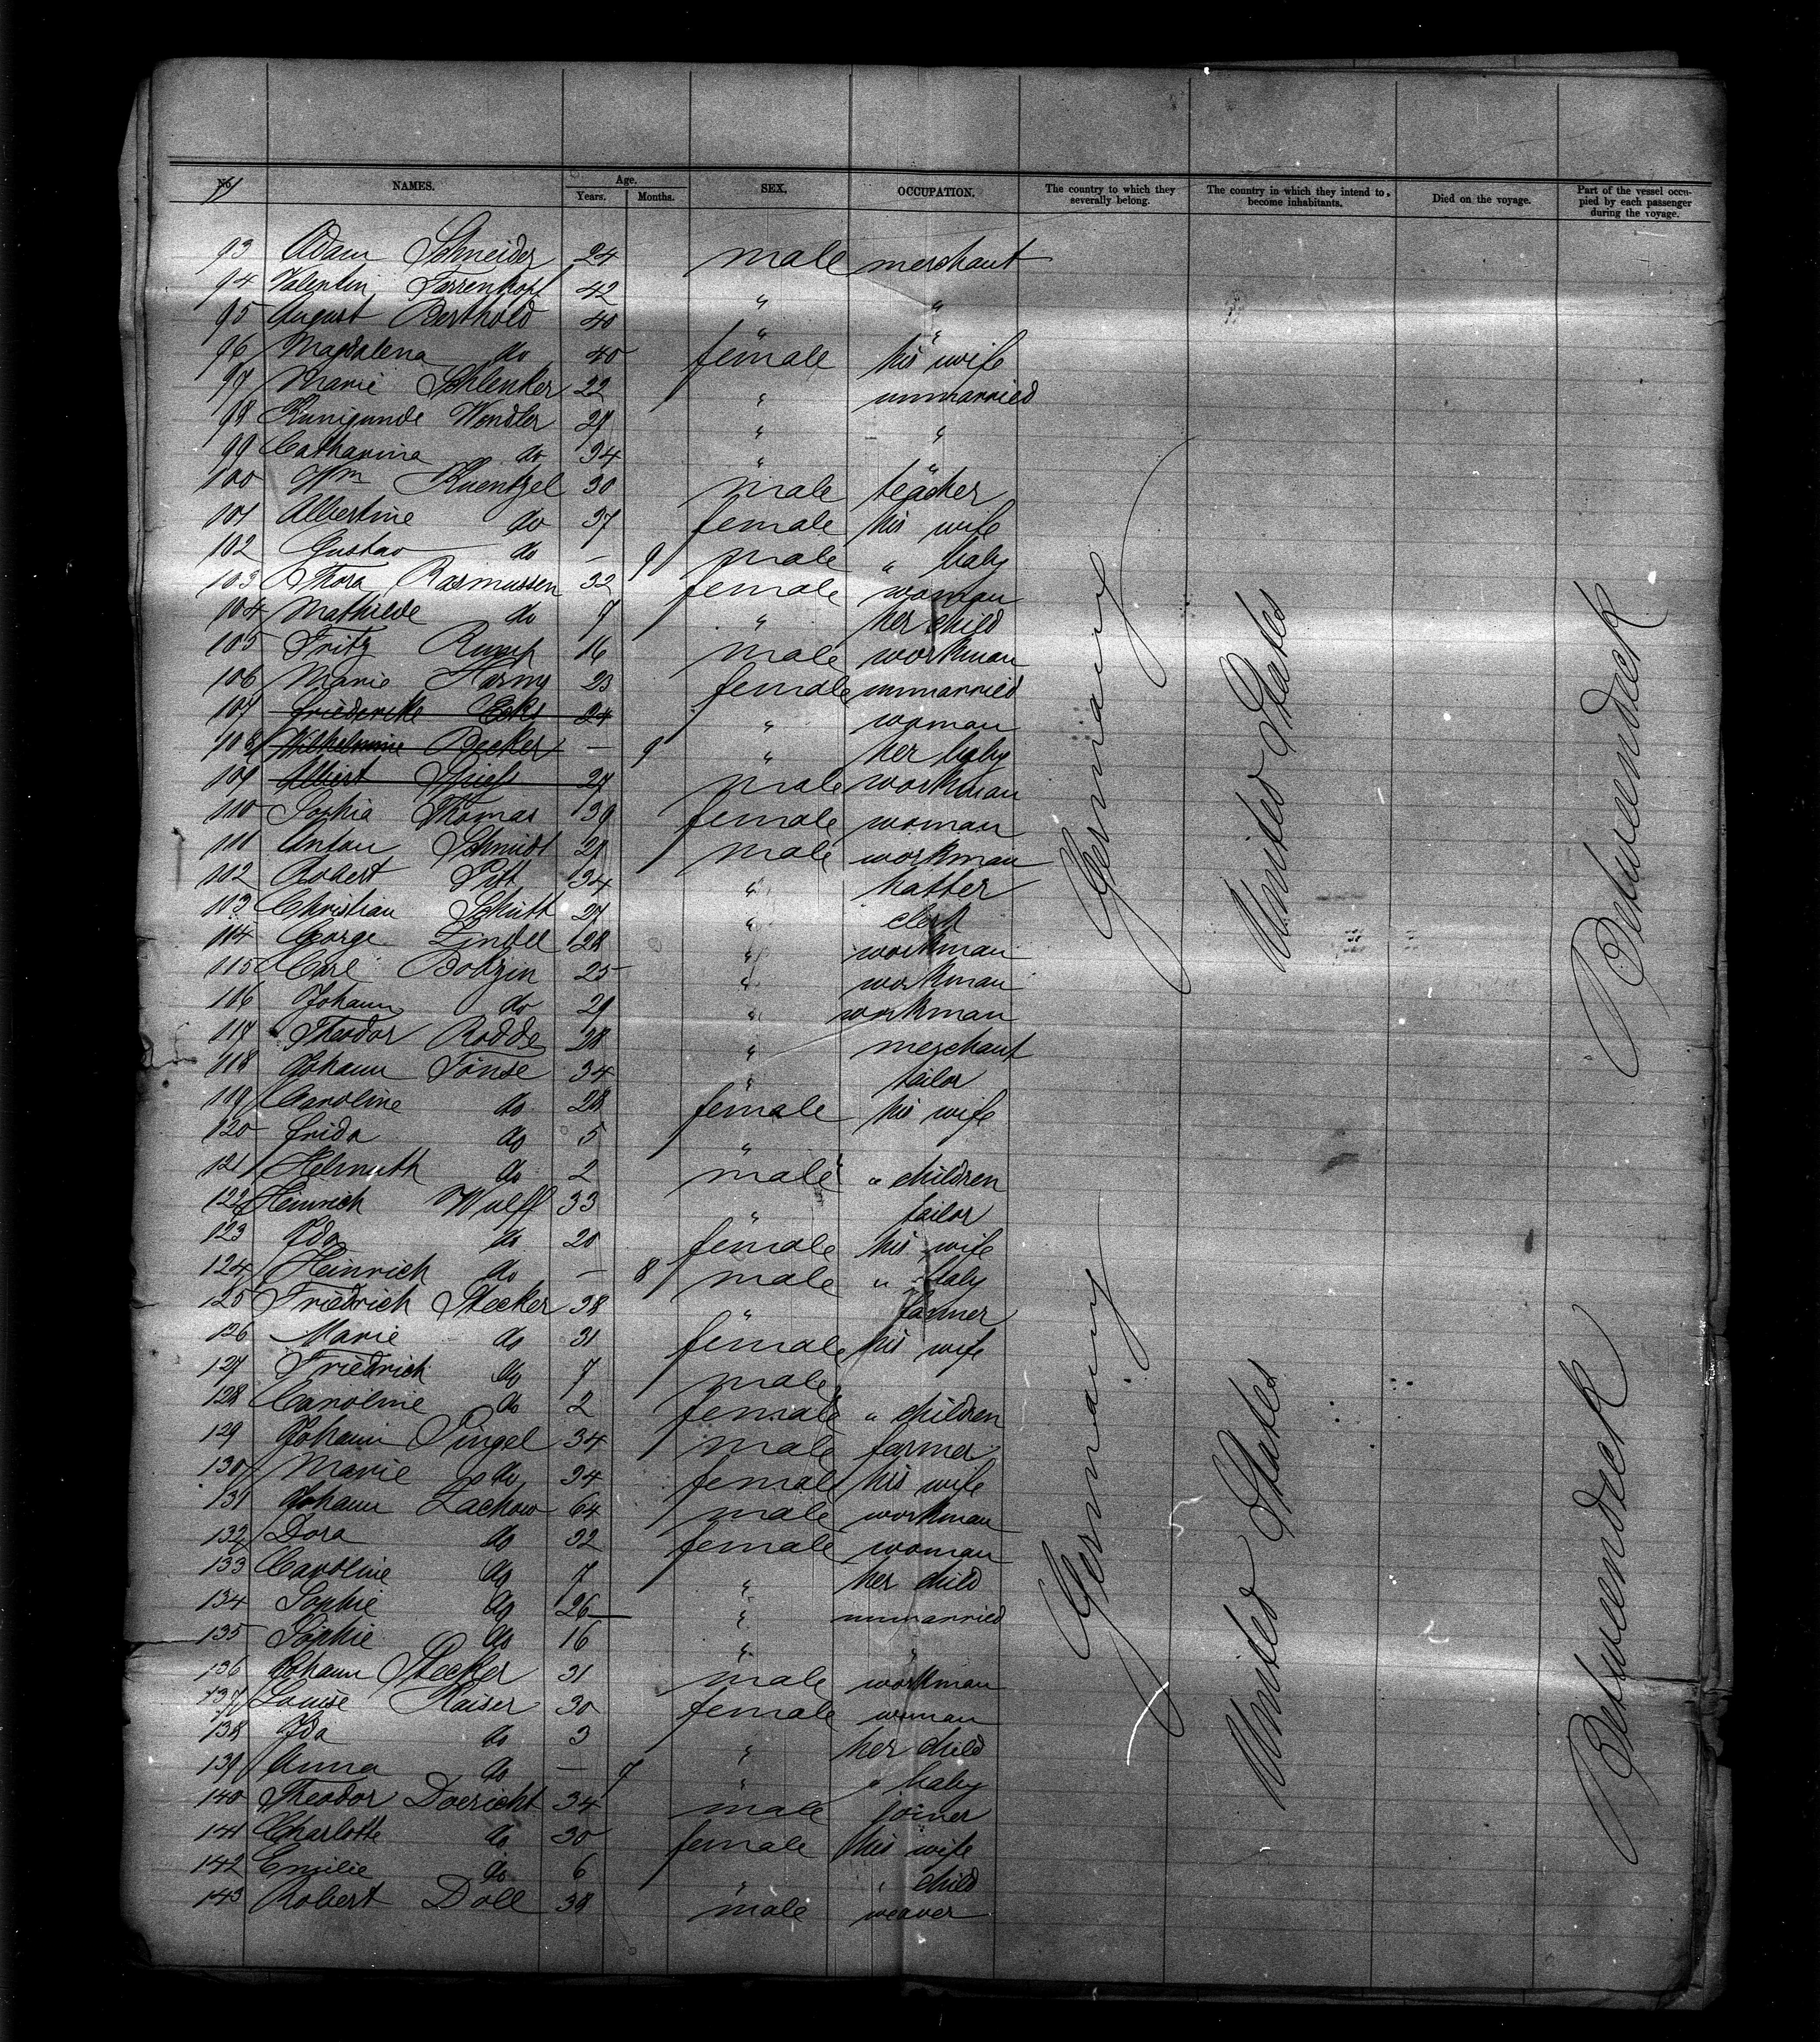 No. NAMES. Age. Years. Months. SEX. OCCUPATION. The country to which they severally belong. The country in which they intend to become inhabitants. Died on the voyage. Part of the vessel occupied by each passenger during the voyage.
93 Adam Schneider 24 male merchant
94 Valentin Farrenkopf 42 " "
95 August Berthold 40 " "
96 Magdalena do 40 female his wife
97 Marie Schlenker 22 " unmarried
98 Kunigunde Wendler 29 " "
99 Catharina do 34 " "
100 Wm Kuentzel 30 male teacher
101 Albertine do 37 female his wife
102 Gustav do — 9 male " baby
103 Thora Rasmussen 32 female woman
104 Mathilde do 7 " her child
105 Fritz Rump 16 male workman
106 Marie Harms 23 female unmarried
107 Friedericke 24 " woman
108 Wilhelmine Becker — 9 " her baby
109 Albert 27 male workman
110 Sophia Thomas 39 female woman
111 Anton Schmidt 21 male workman
102 Robert Pitt 34 " hatter
103 Christian Schütt 27 " clerk
114 George Lindel 28 " workman
115 Carl Bobzin 25 " workman
116 Johann do 29 " workman
117 Theodor Rodde 28 " merchant
118 Johann Tönse 34 " tailor
119 Caroline do 28 female his wife
120 Frida do 5 " "
121 Helmuth do 2 male " children
122 Heinrich Wulff 33 " tailor
123 Ida do 20 female his wife
124 Heinrich do — 8 male " baby
125 Friedrich Stecker 38 " farmer
126 Marie do 31 female his wife
127 Friedrich do 7 male "
128 Caroline do 2 female " children
129 Johann Pingel 34 male farmer
130 Marie do 34 female his wife
131 Johann Zachow 64 male workman
132 Dora do 32 female woman
133 Caroline do 7 " her child
134 Sophie do 26 " unmarried
135 Sophie do 16 " "
136 Johann Stecker 31 male workman
137 Louise Kaiser 30 female woman
138 Ida do 3 " her child
139 Anna do — 7 " " baby
140 Theodor Doericht 34 male joiner
141 Charlotte do 30 female his wife
142 Emilie do 6 " " child
143 Robert Doll 38 male weaver
Germany
United States
Betweendeck
Germany
United States
Betweendeck